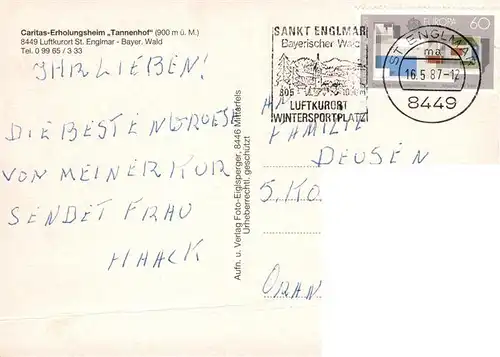 Caritas-Erholungsheim „Tannenhof" (900 m ü. M.)
8449 Luftkurort St. Englmar - Bayer. Wald
Tel. 0 99 65 / 3 33
IHR LIEBEN!
DIE BESTEN GRUESSE
VON MEINER KUR
SENDET FRAU
HAACK
Aufn. u. Verlag Foto-Eiglsperger, 8446 Mitterfels
Urheberrechtl. geschützt
SANKT ENGLMAR
Bayerischer Wald
805
LUFTKURORT
WINTERSPORTPLATZ
EUROPA
60
ST ENGLMAR
ma
16.5.87-12
8449
AN
FAMILIE
DEUSEN
5. KO
ORAN